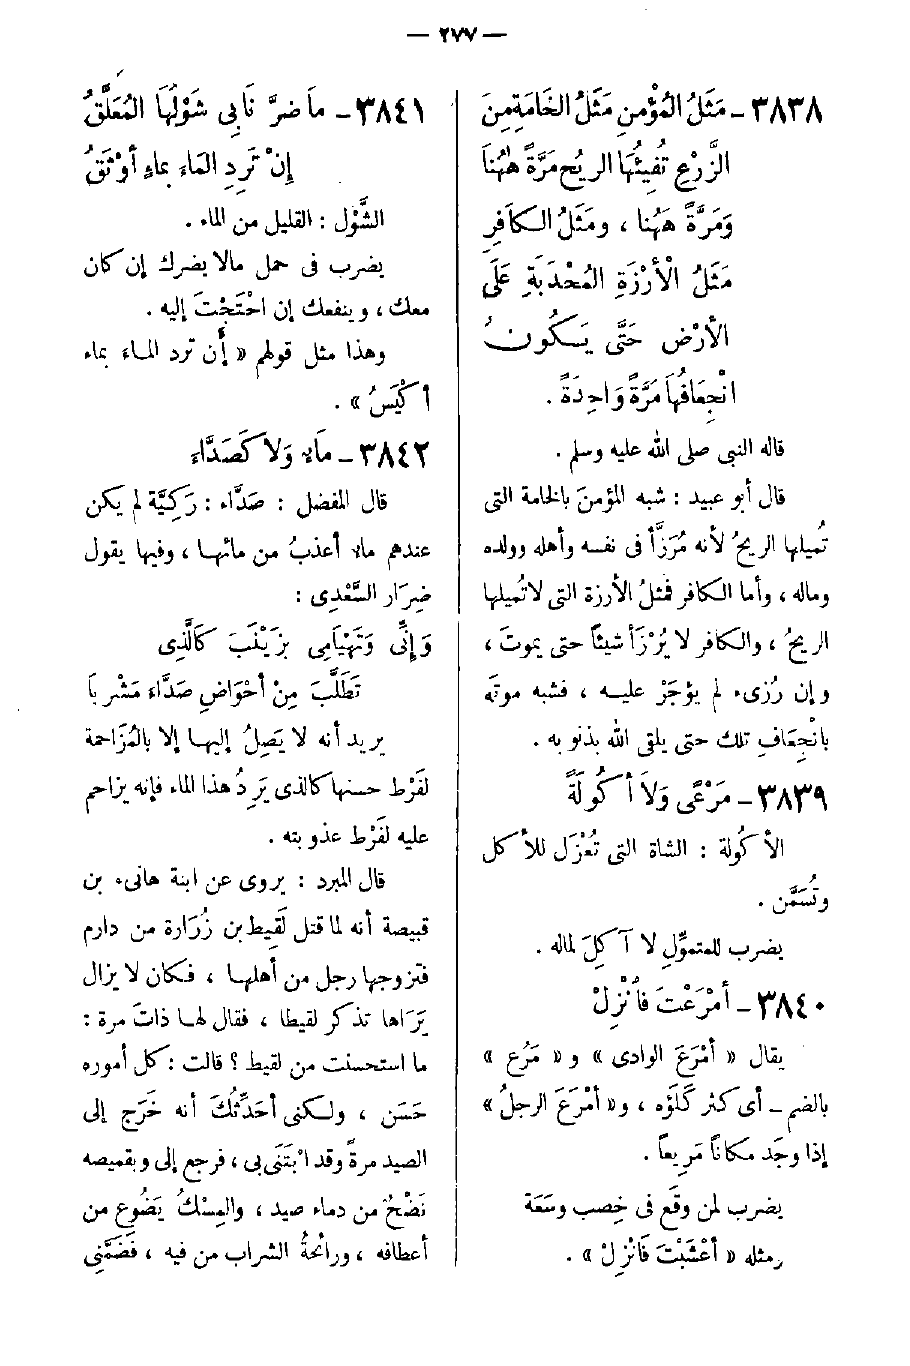 — ٢٧٧ —
٣٨٣٨ – مَثَلُ المُؤْمِنِ مَثَلُ الخَامَةِ مِنَ
الزَّرْعِ تُفِيئُهَا الرِيحُ مَرَّةً هٰهُنَا
وَمَرَّةً هَهُنا ، ومَثَلُ الكَافِرِ
مَثَلُ الْأَرْزَةِ المُحْدَبَةِ عَلَى
الأَرْضِ حَتَّى يَكُونُ
انْجِعَافُهَا مَرَّةً وَاحِدَةً .
قاله النبى صلى الله عليه وسلم .
قال أبو عبيد : شبه المؤمنَ بالخامة التى
تُميلها الريحُ لأنه مُرَزَّأ فى نفسه وأهله وولده
وماله ، وأما الكافر فمثلُ الأرزة التى لا تُميلها
الريحُ ، والكافر لا يُرْزَأ شيئاً حتى يموتَ ،
وإن رُزىء لم يؤجَرْ عليه ، فشبه موتَه
بانْجِعَافِ تلك حتى يلقى الله بذنوبه .
٣٨٣٩ – مَرْعًى وَلاَ أكُولَةً
الأكُولة : الشاة التى تُعْزَل للأكل
وتُسَمَّن .
يضرب للمتموِّلِ لا آكِلَ لماله .
٣٨٤٠ – أمْرَعْتَ فَأنْزِلْ
يقال « أمْرَعَ الوادى » و « مَرُع »
بالضم – أى كثر كَلَؤه ، و« أمْرَعَ الرجلُ »
إذا وجَد مكاناً مَرِيعاً .
يضرب لمن وقَع فى خِصب وسَعَة
ومثله « أعْشَبْتَ فَانْزِلْ » .
٣٨٤١ – مَا ضَرَّ نَابِى شَوْلُهَا المُعَلَّقُ
إنْ تَرِدِ المَاءَ بمَاءٍ أوْثَقُ
الشَّوْل : القليل من الماء .
يضرب فى حمل مالا يضرك إن كان
معك ، وينفعك إن احْتَجْتَ إليه .
وهذا مثل قولهم « أن ترد الماء بماء
أكْيَسُ » .
٣٨٤٢ – مَاء وَلاَ كَصَدَّاء
قال المفضل : صَدَّاء : رَكِيَّة لم يكن
عندهم ماء أعذبُ من مائها ، وفيها يقول
ضِرَار السَّعْدِى :
وَإنِّى وَتَهْيَامِى بزَيْنَبَ كَالَّذِى
تَطَلَّبَ مِنْ أحْوَاضِ صَدَّاءَ مَشْرَبَا
يريد أنه لا يَصِلُ إليها إلا بالمُزَاحمة
لفَرْط حسنها كالذى يَرِدُ هذا الماء فإنه يزاحم
عليه لفَرْط عذوبته .
قال المبرد : يروى عن ابنة هانىء بن
قبيصة أنه لما قتل لَقِيط بن زُرَارة من دارم
فتزوجها رجل من أهلها ، فكان لا يزال
يَرَاها تذكر لقيطا ، فقال لها ذاتَ مرة :
ما استحسنت من لقيط ؟ قالت : كل أموره
حَسَن ، ولكنى أحَدِّثُكَ أنه خَرَج إلى
الصيد مرةً وقد ابْتَنَى بى ، فرجع إلى وبقميصه
نَضْحُ من دماء صيد ، والمِسْكُ يَضُوع من
أعطافه ، ورائحةُ الشراب من فيه ، فَضَمَّنِى